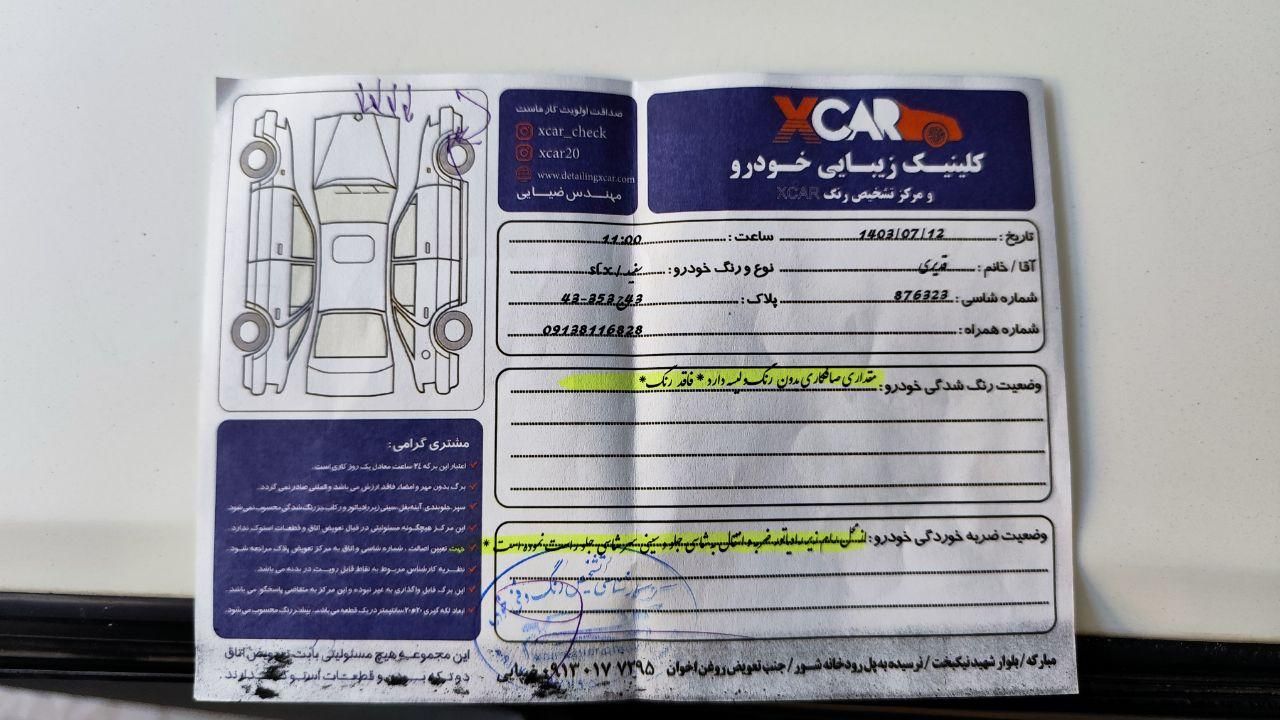 XCAR
کلینیک زیبایی خودرو
و مرکز تشخیص رنگ XCAR
صداقت اولویت کار ماست
xcar_check
xcar20
www.detailingxcar.com
مهندس ضیایی
تاریخ: 1403/07/12 ساعت: 11:00
آقا / خانم: قدیری نوع و رنگ خودرو: سفید / slx
شماره شاسی: 876323 پلاک: 43ج353-43
شماره همراه: 09138116828
وضعیت رنگ شدگی خودرو: مقداری صافکاری بدون رنگ و لیسه دارد * فاقد رنگ *
وضعیت ضربه خوردگی خودرو: از گلگیر
مشتری گرامی:
اعتبار این برگه ۲۴ ساعت معادل یک روز کاری است.
برگ بدون مهر و امضاء فاقد ارزش می باشد و المثنی صادر نمی گردد.
سپر، جلوبندی، آینه بغل، سینی زیر رادیاتور و رکاب جز رنگ شدگی محسوب نمی شود.
این مرکز هیچگونه مسئولیتی در قبال تعویض اتاق و قطعات استوک ندارد.
جهت تعیین اصالت، شماره شاسی و اتاق به مرکز تعویض پلاک مراجعه شود.
نظریه کارشناس مربوط به نقاط قابل رویت در بدنه می باشد.
این برگ قابل واگذاری به غیر نبوده و این مرکز به متقاضی پاسخگو می باشد.
ابعاد لکه گیری ۲۰*۲۰ سانتیمتر در یک قطعه می باشد. بیشتر رنگ محسوب می شود.
مبارکه / بلوار شهید نیکبخت / نرسیده به پل رودخانه شور / جنب تعویض روغن اخوان ۰۹۱۳۰۱۷۷۲۹۵ ضیایی
این مجموعه هیچ مسئولیتی بابت تعویض اتاق
دو تکه بودن و قطعات استوک ندارند